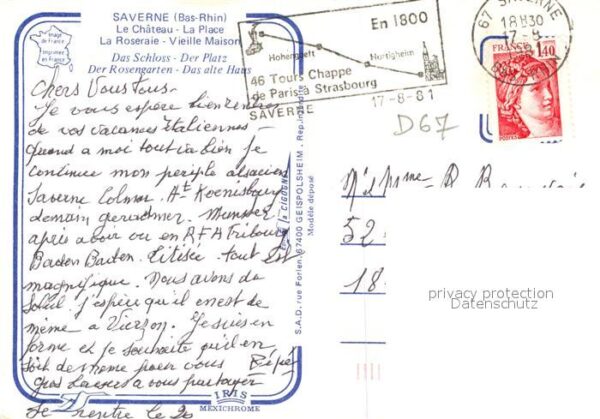 SAVERNE (Bas-Rhin)
Le Château - La Place
La Roseraie - Vieille Maison
Das Schloss - Der Platz
Der Rosengarten - Das alte Haus
Image de France
Imprimé en France
En 1800
Hohengoeft
Nurtigheim
46 Tours Chappe
de Paris à Strasbourg
SAVERNE
17-8-81
67 SAVERNE
18H30
17-8
FRANCE
1,40
POSTES
D67
Chers Vous tous.
Je vous espère bien rentrés
de vos vacances Italiennes
Quand a moi tout va bien je
continue mon periple alsacien
Saverne Colmar. Ht Koenisbourg
demain gerardmer. Munster
après avoir vu en RFA Fribourg
Baden Baden. Titisée. tout est
magnifique. Nous avons du
soleil. j'espère qu'il en est de
même a Vierzon. Je suis en
forme et je souhaite qu'il en
soit de même pour vous Pépé
Gros baisers a vous partager
Je rentre le 20
la CIGOGNE
S.A.D. rue Forlen, 67400 GEISPOLSHEIM. Rep. interdite
Modèle déposé
IRIS
MEXICHROME
52
18
privacy protection
Datenschutz